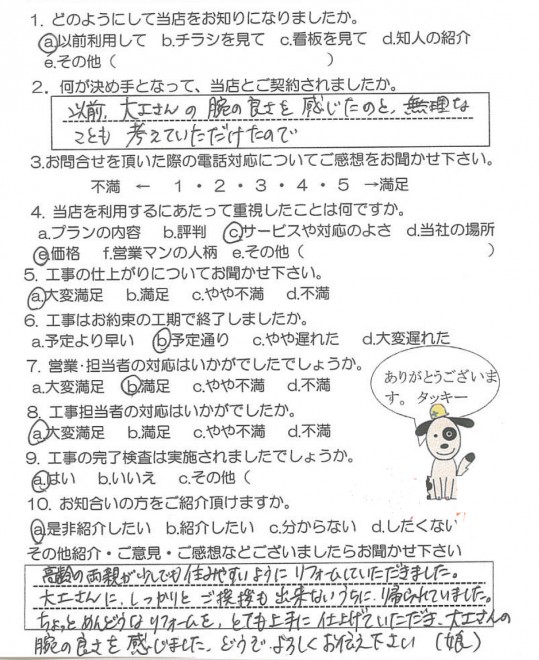 1. どのようにして当店をお知りになりましたか。
a.以前利用して b.チラシを見て c.看板を見て d.知人の紹介
e.その他（ ）
2. 何が決め手となって、当店とご契約されましたか。
以前、大工さんの腕の良さを感じたのと、無理な
ことも考えていただけたので
3.お問合せを頂いた際の電話対応についてご感想をお聞かせ下さい。
不満 ← 1・2・3・4・5 →満足
4. 当店を利用するにあたって重視したことは何ですか。
a.プランの内容 b.評判 c.サービスや対応のよさ d.当社の場所
e.価格 f.営業マンの人柄 e.その他（ ）
5. 工事の仕上がりについてお聞かせ下さい。
a.大変満足 b.満足 c.やや不満 d.不満
6. 工事はお約束の工期で終了しましたか。
a.予定より早い b.予定通り c.やや遅れた d.大変遅れた
7. 営業・担当者の対応はいかがでしたでしょうか。
a.大変満足 b.満足 c.やや不満 d.不満
ありがとうございま
す。 タッキー
8. 工事担当者の対応はいかがでしたか。
a.大変満足 b.満足 c.やや不満 d.不満
9. 工事の完了検査は実施されましたでしょうか。
a.はい b.いいえ c.その他（
10. お知合いの方をご紹介頂けますか。
a.是非紹介したい b.紹介したい c.分からない d.したくない
その他紹介・ご意見・ご感想などございましたらお聞かせ下さい
高齢の両親が少しでも住みやすいようにリフォームしていただきました。
大工さんに、しっかりとご挨拶も出来ないうちに、帰られていました。
ちょっとめんどうなリフォームを、とても上手に仕上げていただき、大工さんの
腕の良さを感じました。どうぞよろしくお伝え下さい（娘）